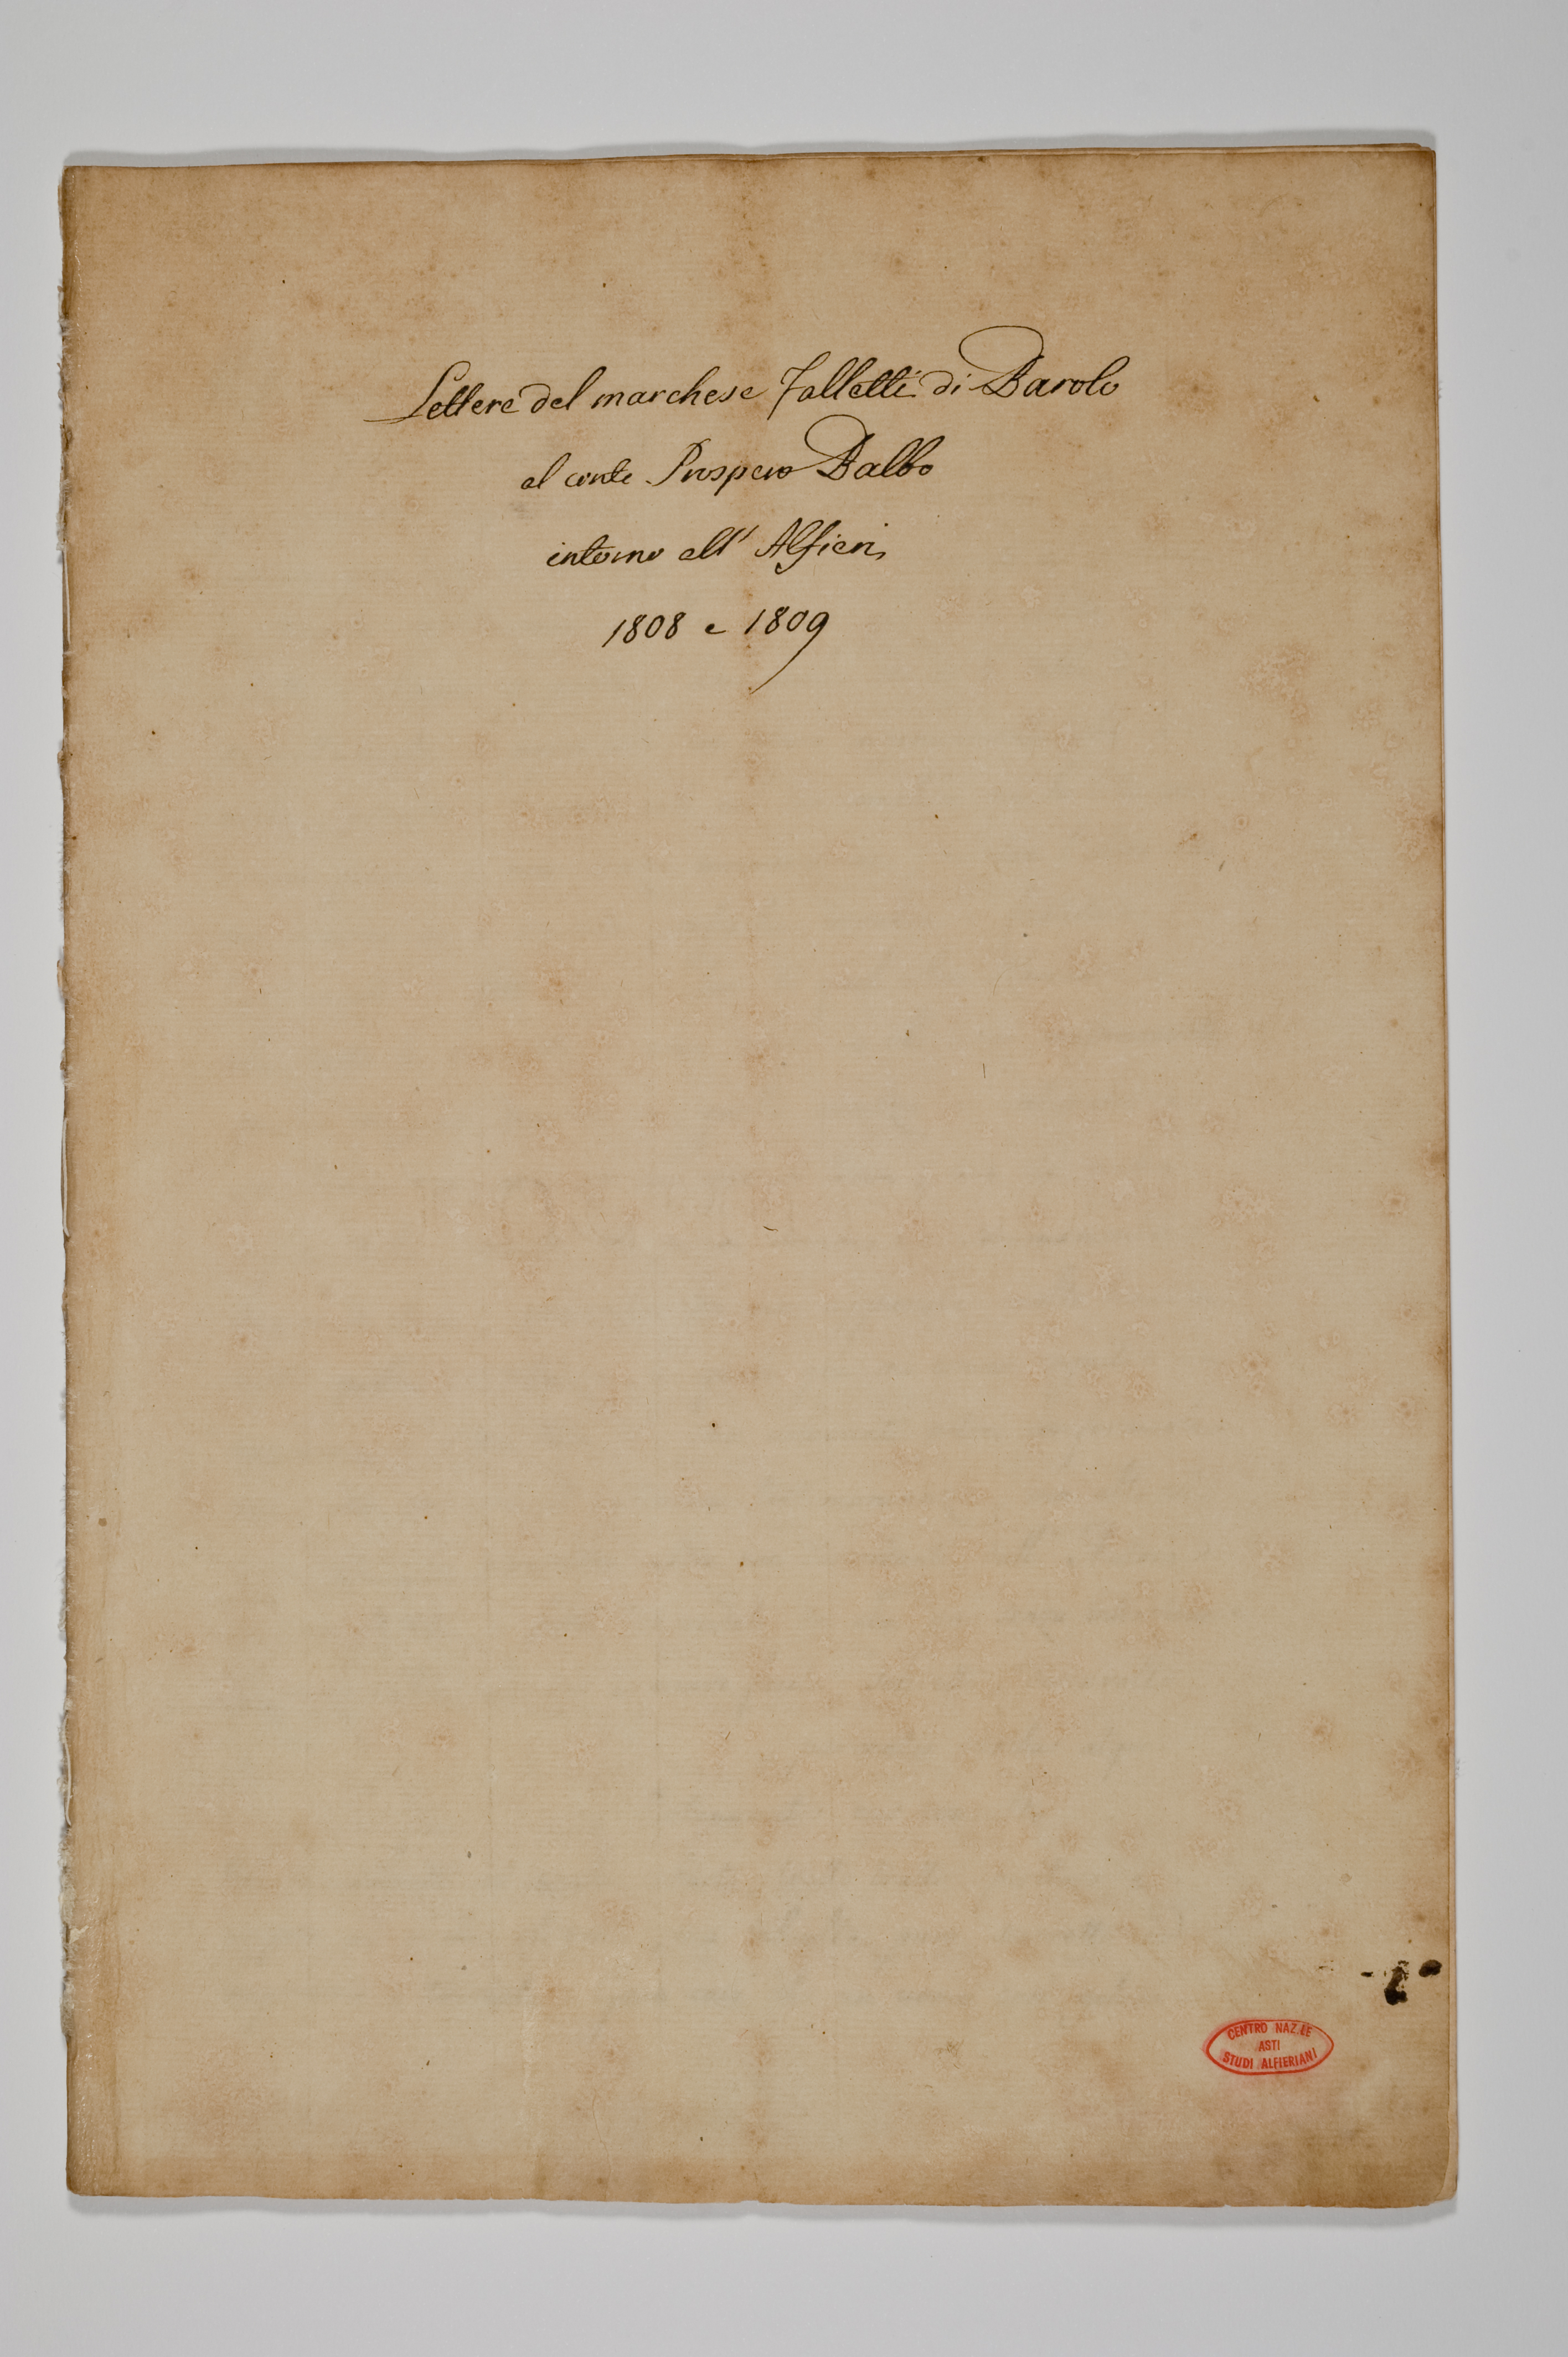 Lettere del marchese Falletti di Barolo
al conte Prospero Balbo
intorno all' Alfieri,
1808 e 1809
CENTRO NAZ.LE
ASTI
STUDI ALFIERIANI